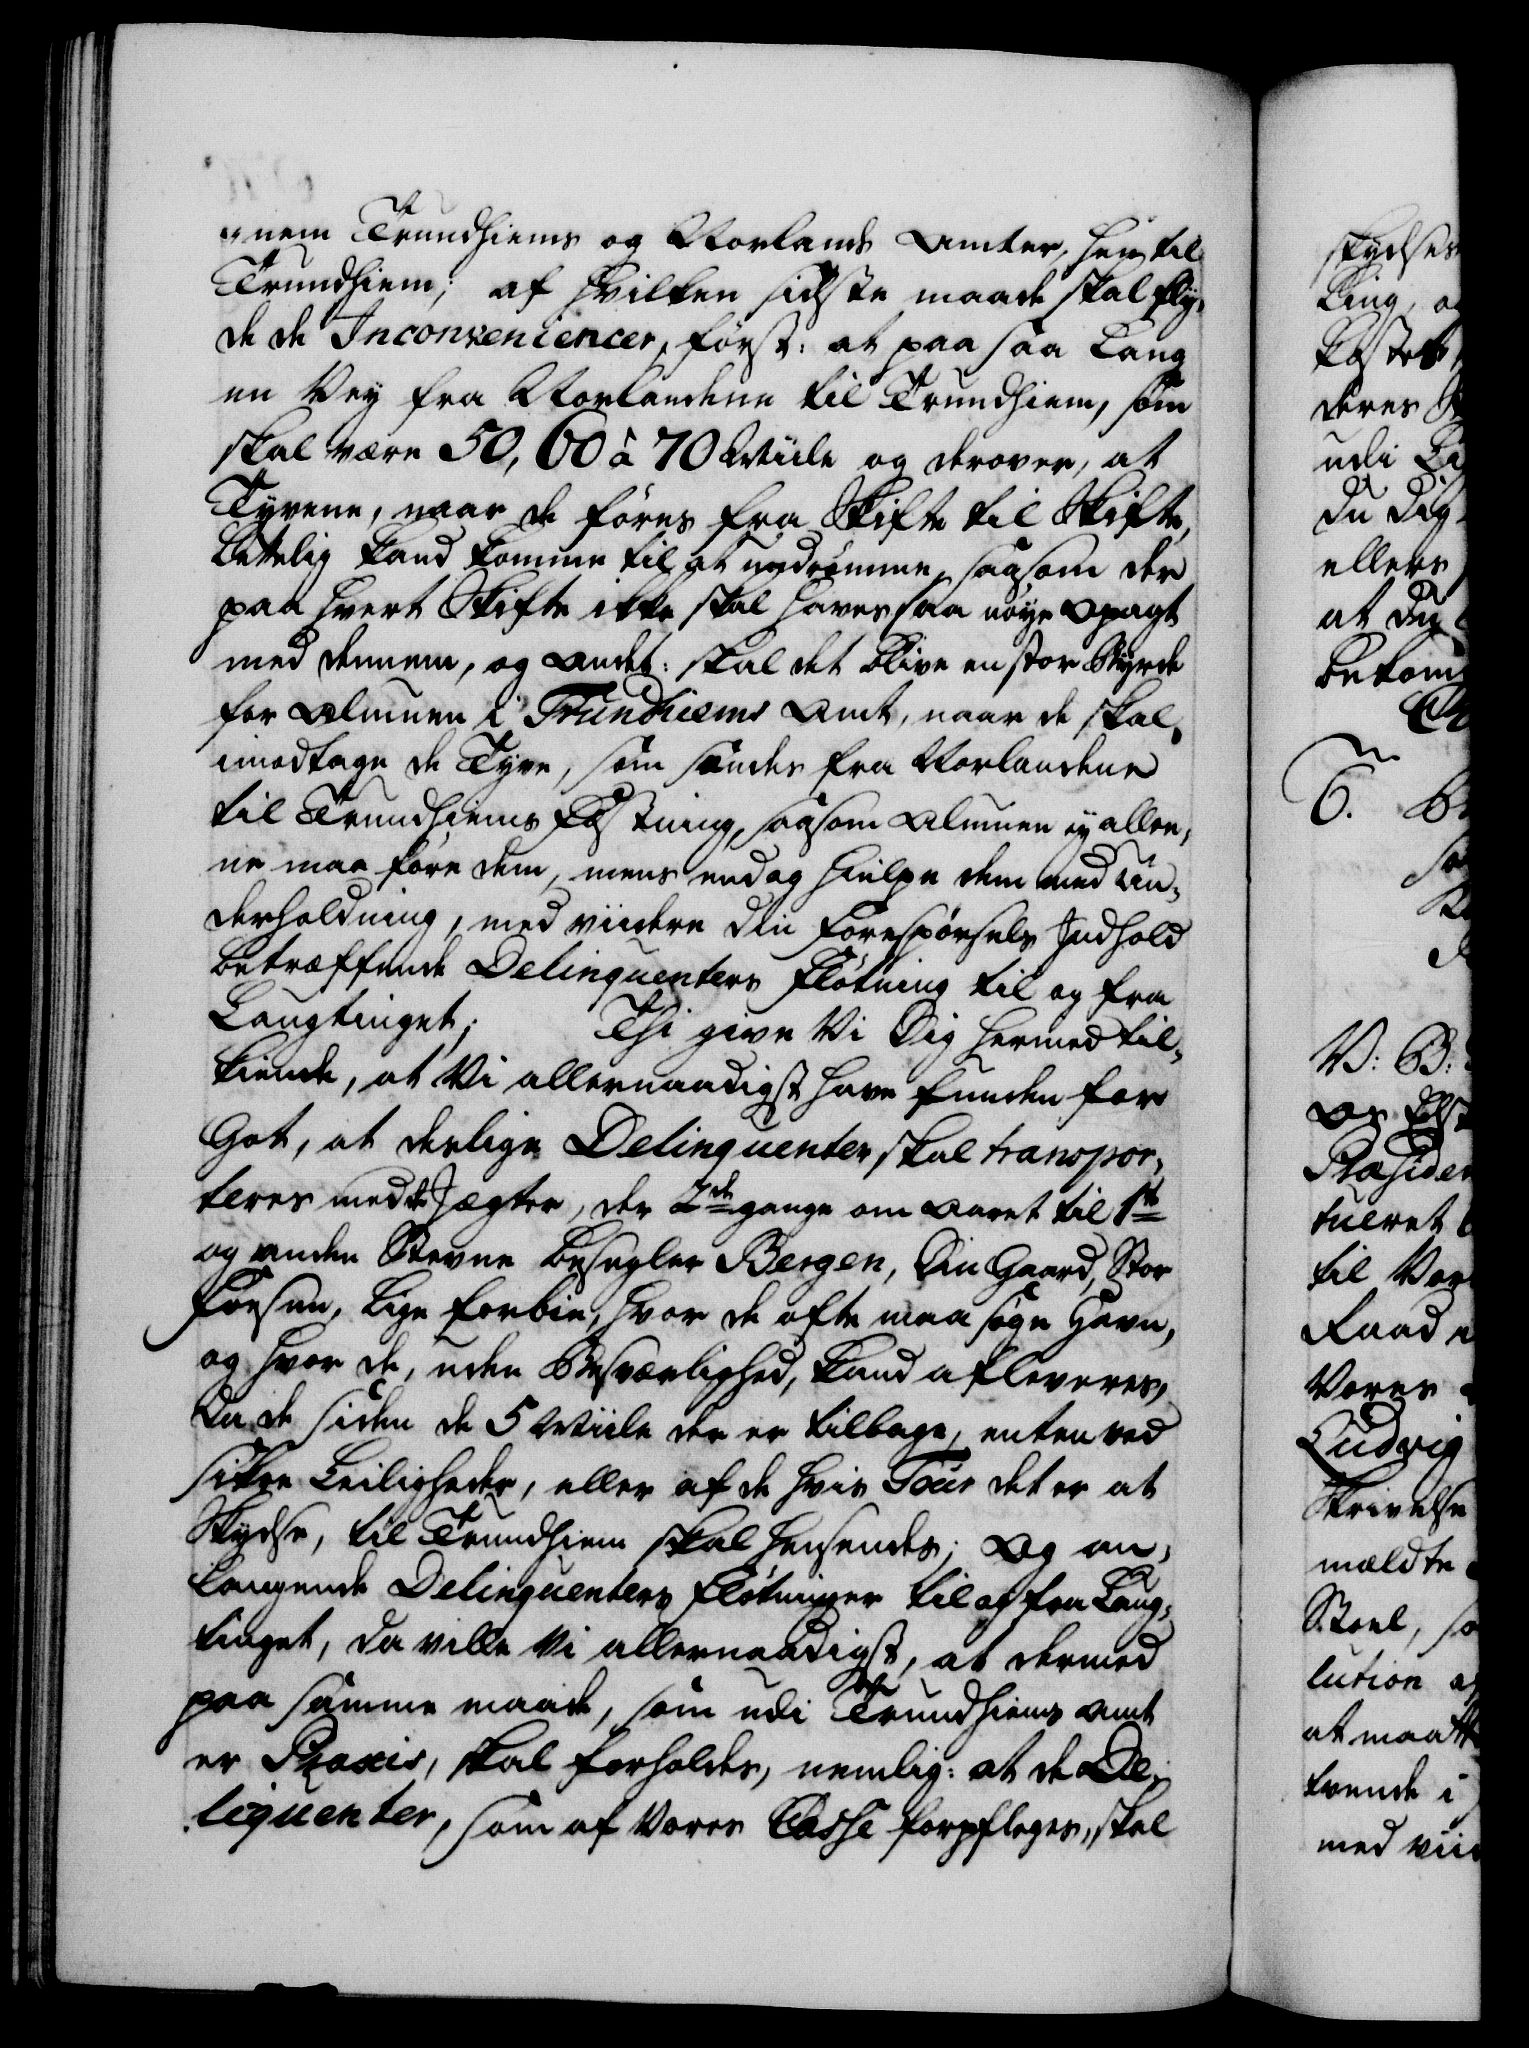 nem Trundhiems og Norlands Amter, hen til
Trundhiem; af hvilken sidste maade skal fly,
de de Inconveniencer, først: at paa saa Lang
en Vey fra Norlandene til Trundhiem, som
skal være 50, 60 à 70 Miile og derover, at
Tyvene, naar de føres fra Skifte til Skifte,
Lettelig kand komme til at undrømme, saasom der
paa hvert Skifte ikke skal haves saa nøye Opagt
med dennem, og Andet: skal det blive en stor Byrde
for Almuen i Trundhiems Amt, naar de skal
imodtage de Tyve, som sændes fra Norlandene
til Trundhiems Fæstning, saasom Almuen ey alle,
ne maa føre dem, mens endog hielpe dem med Un,
derholdning, med viidere din Forespørsels Indhold
betræffende Delinquenters Fløtning til og fra
Laugtinget; Thi give Vi Dig hermed til,
kiende, at Vi allernaadigst have funden for
Got, at deslige Delinquenter, skal transpor,
teres med de Jægter, der 2de gange om Aaret til 1ste
og anden Stevne besegler Bergen, Din Gaard, Stor
Fosen, lige forbie, hvor de ofte maa søge Havn,
og hvor de, uden Besværlighed, kand afleveres,
Da de siden de 5 Miile der er tilbage, enten ved
sikre Leiligheder, eller af de hvis Tour det er at
Skydse, til Trundhiem skal hensendes; Og an,
langende Delinquenters Fløtninger til og fra Laug,
tinget, da ville Vi allernaadigst, at dermed
paa samme maade, som udi Trundhiems Amt
er Praxis, skal forholdes, nemlig: at de De,
liquenter, som af Vores Casse forpfleges, skal
skydses
Ling, o
deres
udi
du dig
ellers
at du
bekom
6.
V: B:
Præside
tueret
til Vor
Raad
Vores
Ludvig
Skrivelse
mældte
Stoel, so
lution
at maatt
tvende i
med vii